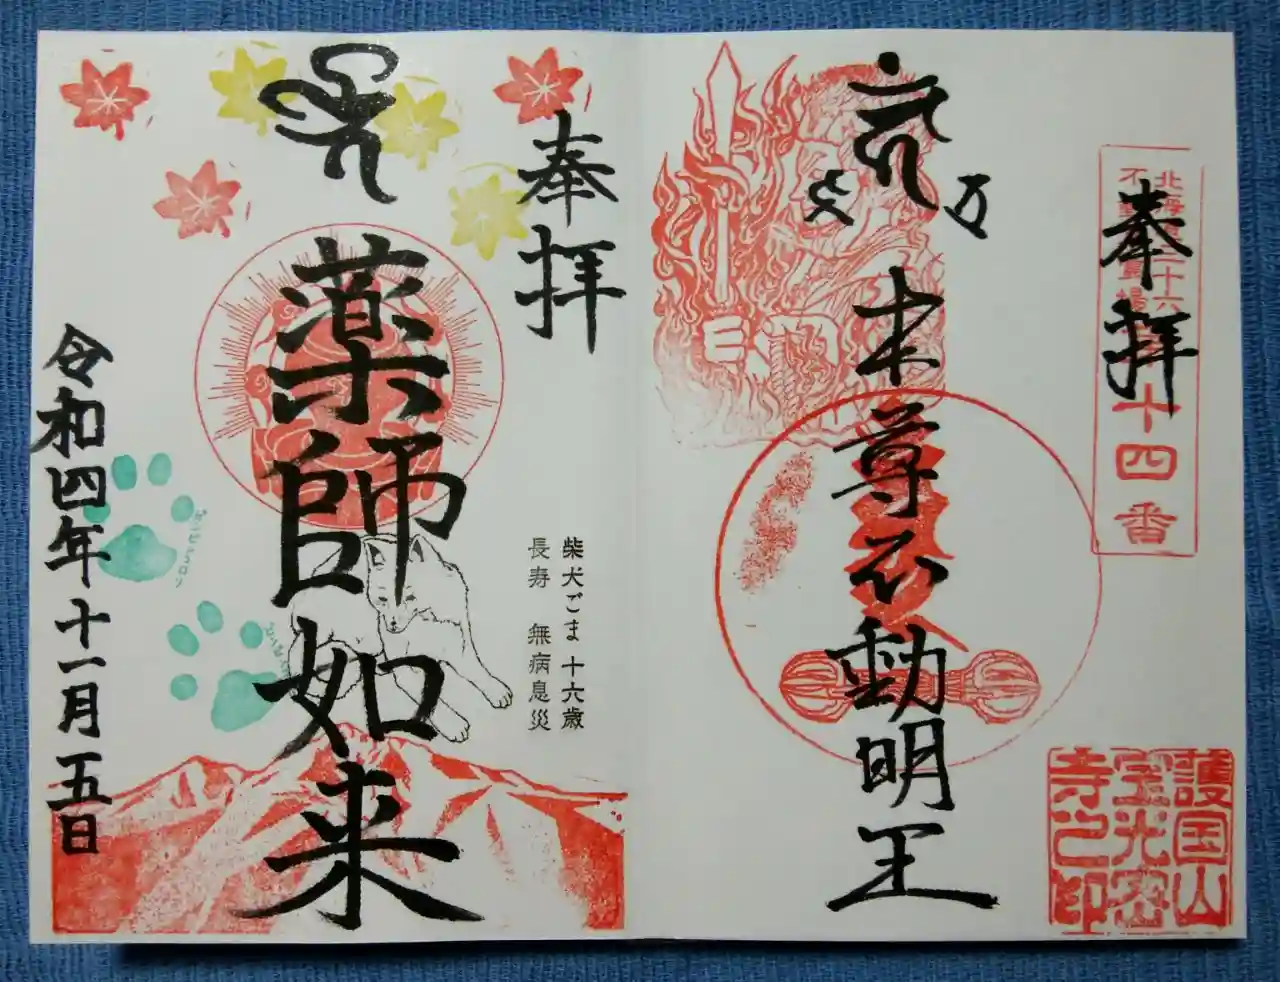 奉拝
北海道三十六
不動尊霊場
十四番
本尊不動明王
護国山
宝光密
寺之印
奉拝
薬師如来
柴犬ごま 十六歳
長寿 無病息災
令和四年十一月五日